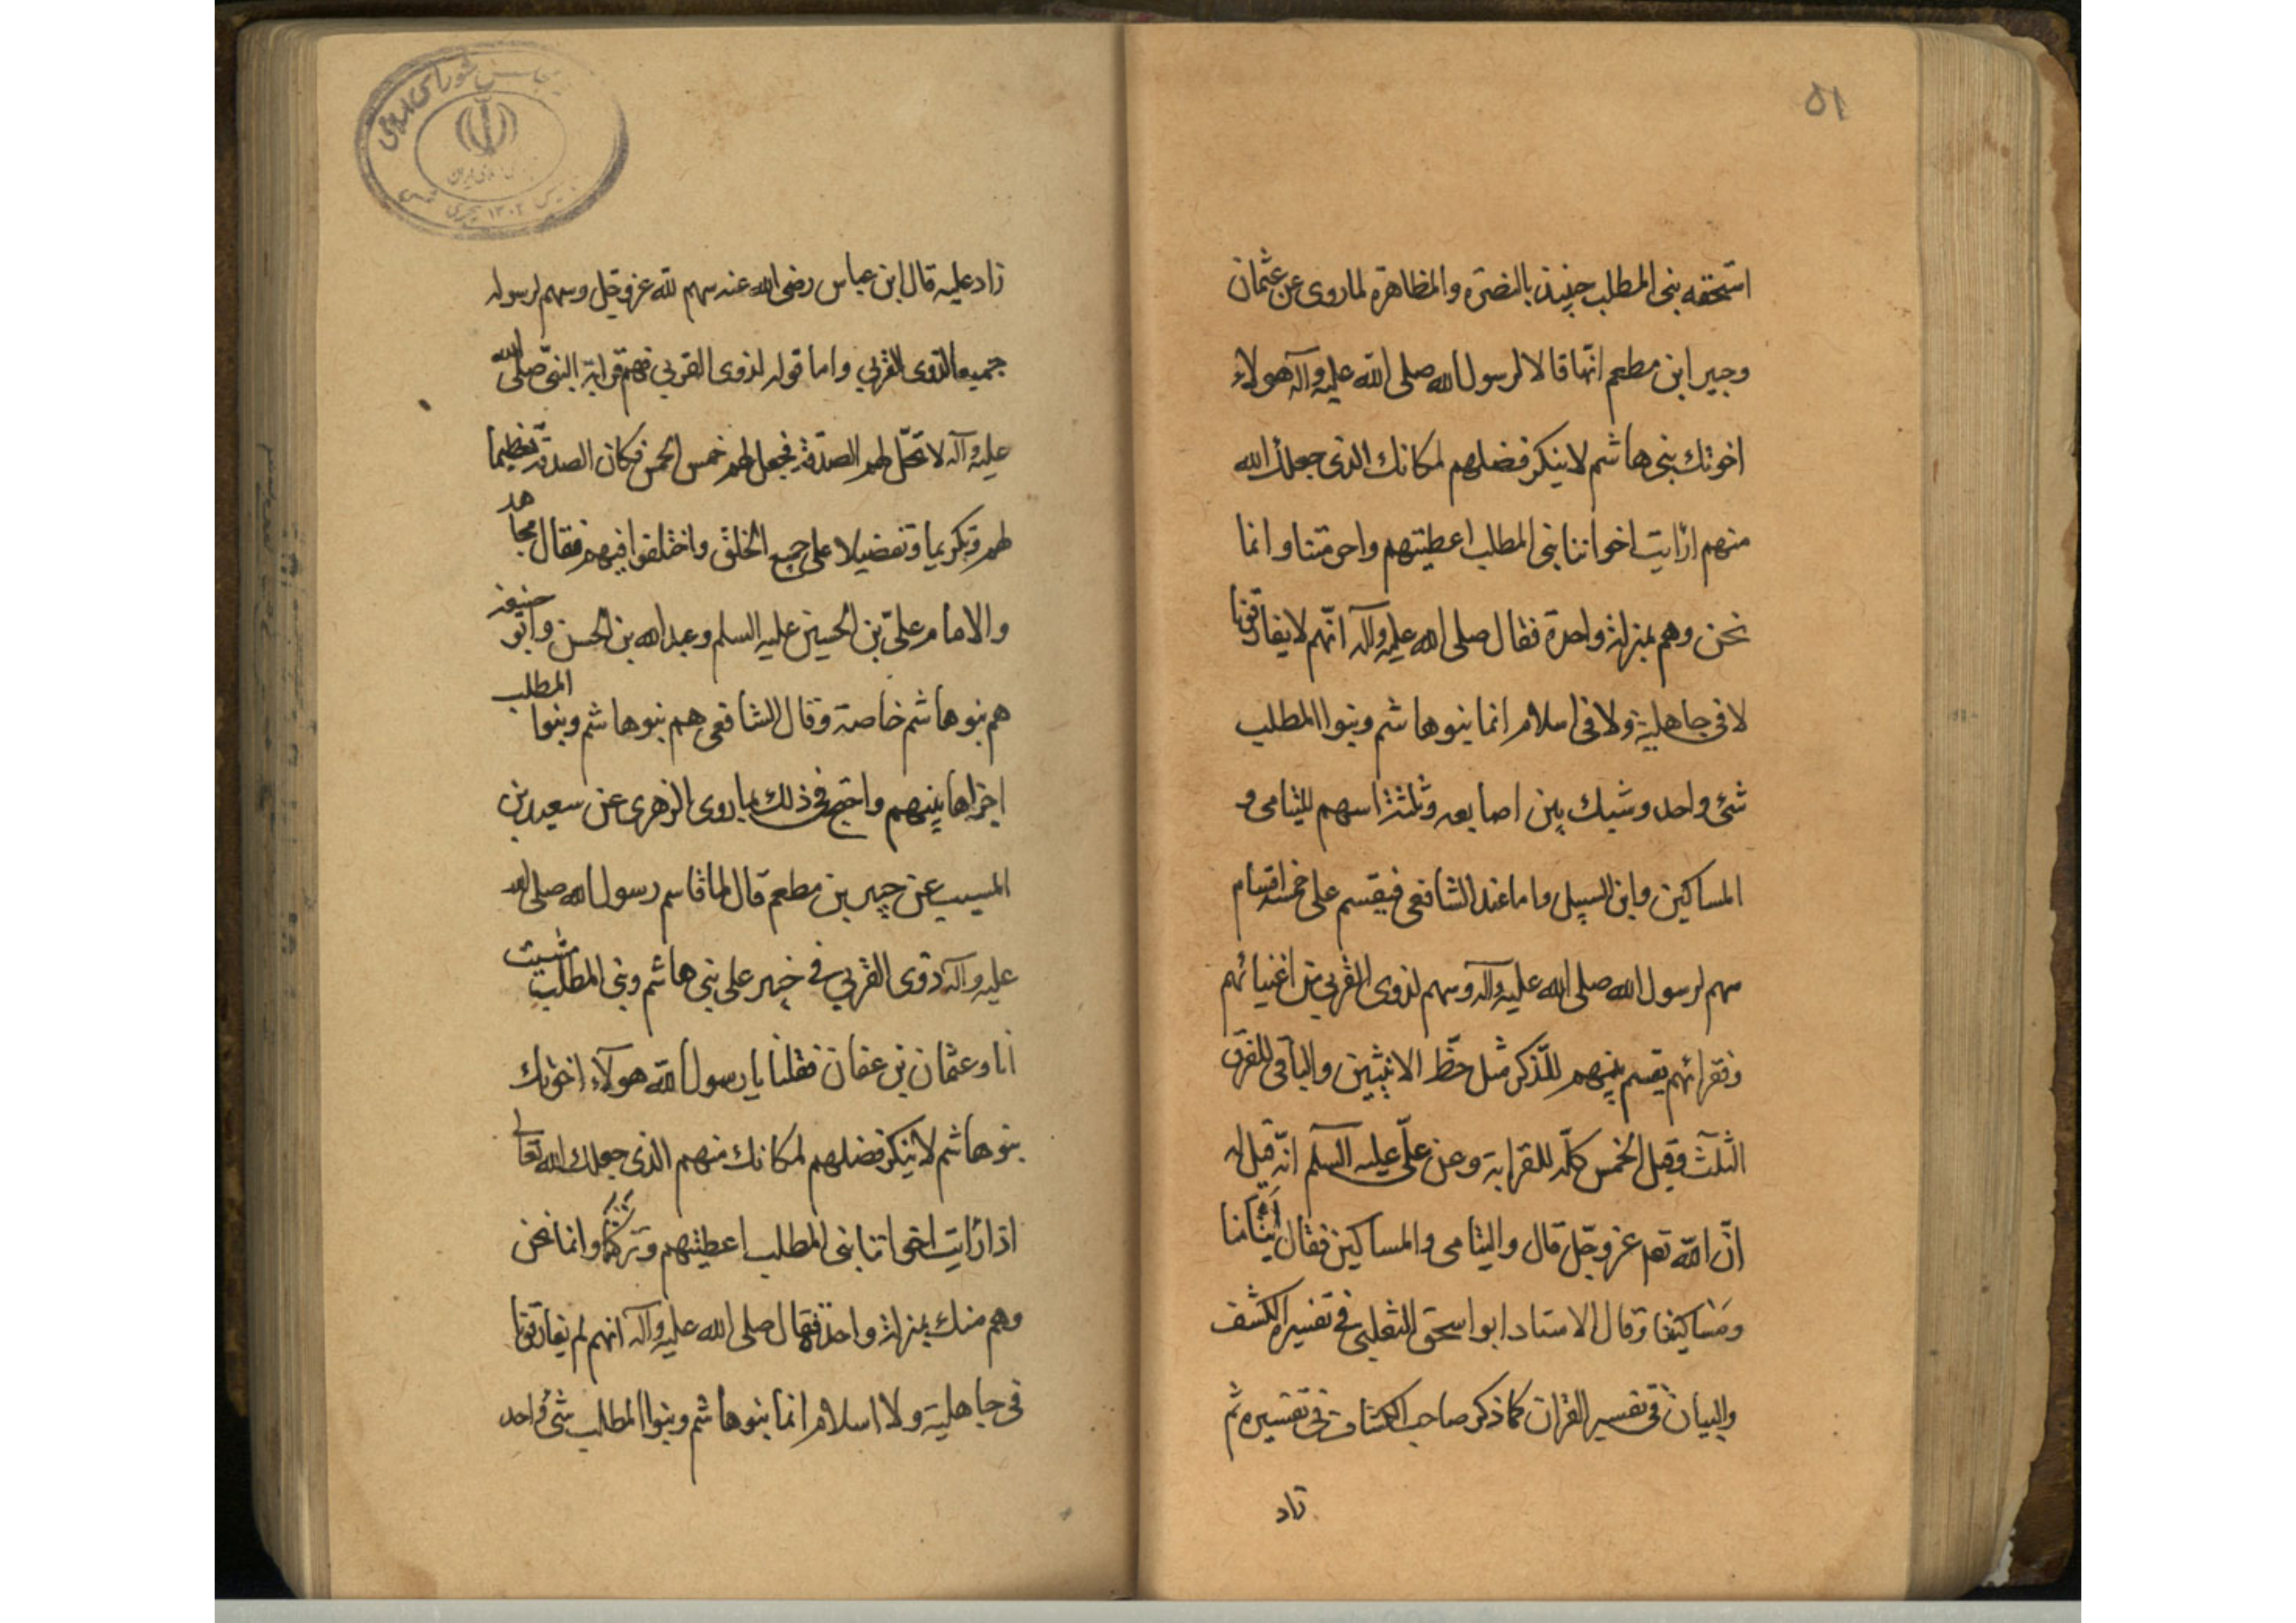 ٥١
استحقه بنى المطلب حينئذ بالنصرة والمظاهرة لما روى عن عثمان
وجبير ابن مطعم انّهما قالا لرسول الله صلى الله عليه وآله هولاء
اخوتك بنى هاشم لا ينكر فضلهم لمكانك الذى جعلك الله
منهم ارايت اخواننا بنى المطلب اعطيتهم واحرمتنا وانما
نحن وهم بمنزلة واحدة فقال صلى الله عليه وآله انّهم لا يفارقونا
لا فى جاهلية ولا فى اسلام انما بنوها شم وبنوا المطلب
شئ واحد وشبك بين اصابعه وثلثة اسهم لليتامى و
المساكين وابن السبيل واما عند الشافعى فيقسم على خمسة اقسام
سهم لرسول الله صلى الله عليه وآله وسهم لذوى القربى من اغنيائهم
وفقرائهم يقسم بينهم للذّكر مثل حظّ الانثيين والباقى للفرق
الثلث وقيل الخمس كلّه للقرابة وعن علّى عليه السلم انّه قيل له
انّ الله تعـ عزوجّل قال واليتامى والمساكين فقال ايتامنا
ومَساكيننا وقال الاستاد ابو اسحق الثعلبى فى تفسيره الكشف
والبيان فى تفسير القران كما ذكر صاحب الكشاف فى تفسيره ثم
زاد
زاد عليه قال ابن عباس رضى الله عنه سهم لله عزوجّل وسهم لرسوله
جميعا لذوى القربي واما قوله لذوى القربي فهم قرابة النبّى صلى الله
عليه وآله لا تحلّ لهم الصدّقة فجعل لهم خمس الخمس فكان الصدقة تعظيما
لهم وتكريما وتفضيلا على جميع الخلق واختلفوا فيهم فقال مجاهد
والامام علىّ بن الحسين عليه السلم وعبد الله بن الحسن وابو حنيفة
هم بنو هاشم خاصة وقال الشافعى هم بنوها شم وبنوا المطلب
اجزاها بينهم واحتج فى ذلك بما روى الزهرى عن سعيد بن
المسيب عن جبير بن مطعم قال لما قاسم رسول الله صلى الله
عليه وآله ذوى القربي فى خيبر على بنى هاشم وبنى المطلب مشيت
انا وعثمان بن عفان فقلنا يا رسول الله هولآء اخوتك
بنوها شم لا ينكر فضلهم لمكانك منهم الذى جعلك الله تعالى
اذا رايت اخواننا بنى المطلب اعطيتهم وتركتنا وانما نحن
وهم منك بمنزلة واحدة فقال صلى الله عليه وآله انهم لم يفارقونا
فى جاهلية ولا اسلام انما بنوها شم وبنوا المطلب شئ واحد